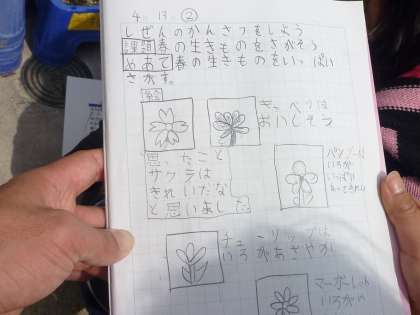 4. 13. ②
しぜんのかんさつをしよう
課題 春の生きものをさがそう
めあて 春の生きものをいっぱい
さがす。
思ったこと
サクラは
きれいだな
と思いました。
キャベツは
おいしそう
パンジーは
いろが
いっぱい
チューリップは
いろがあざやか
いろが